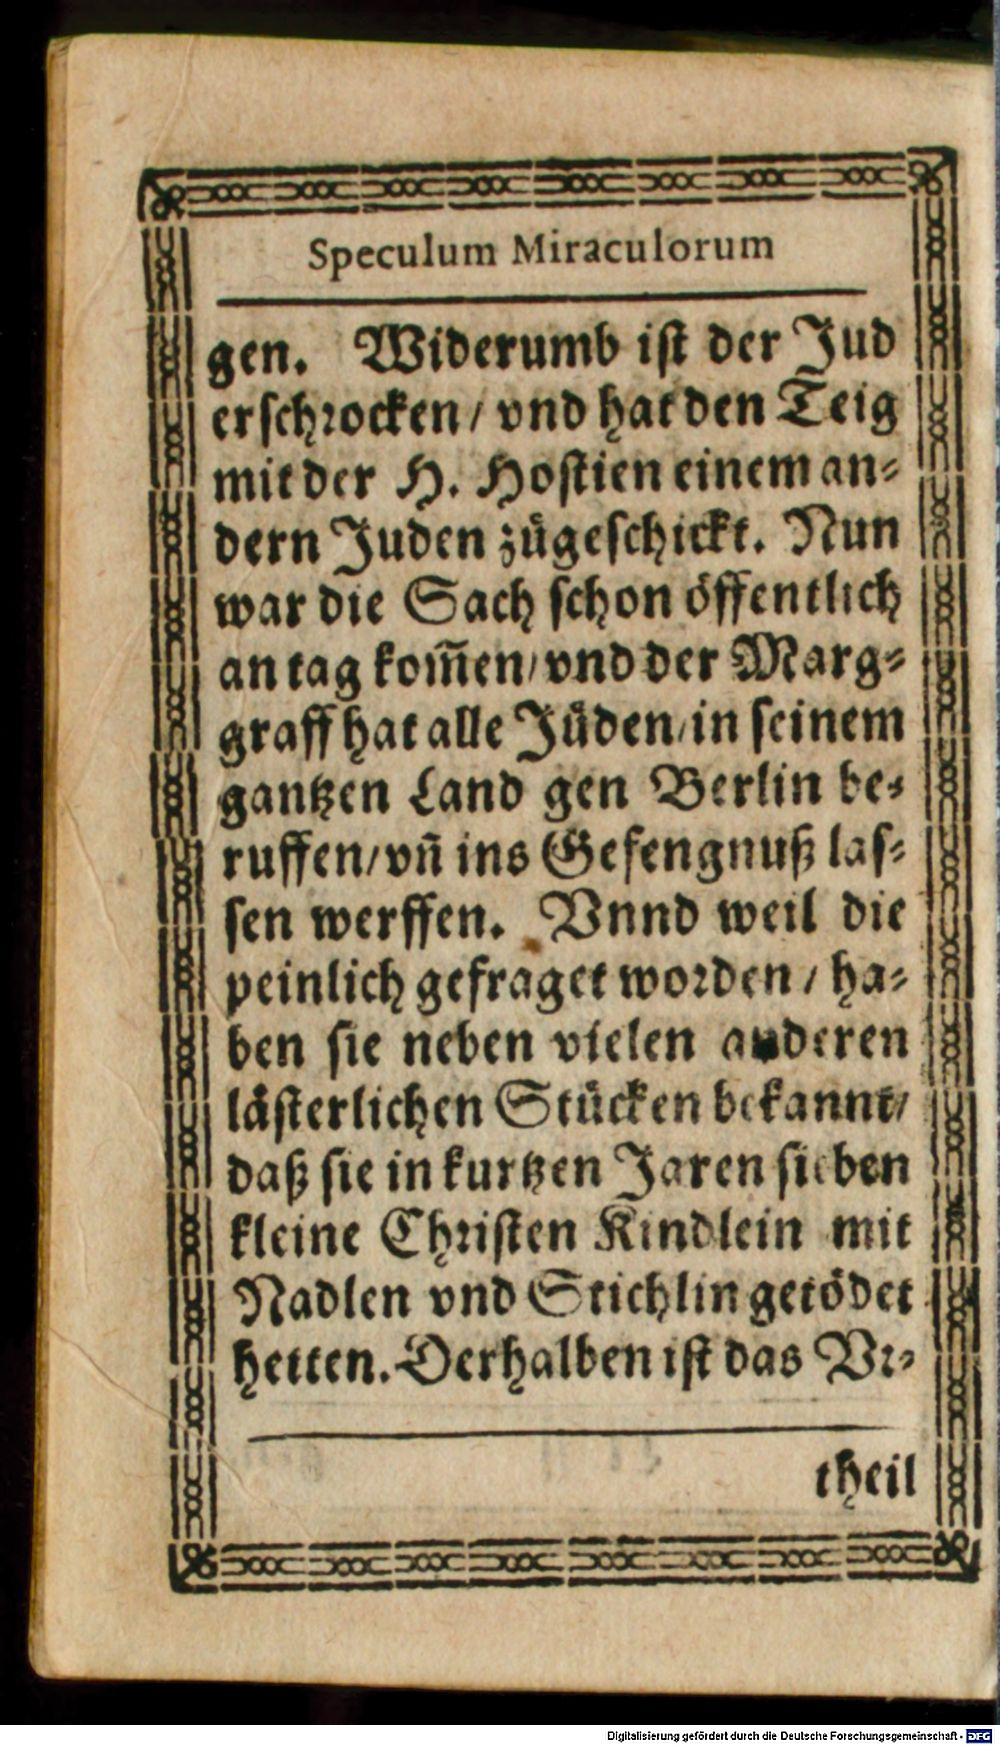 Speculum Miraculorum
gen. Widerumb ist der Jud
erschrocken / vnd hat den Teig
mit der H. Hostien einem an-
dern Juden zůgeschickt. Nun
war die Sach schon öffentlich
an tag kom̃en / vnd der Marg-
graff hat alle Jůden / in seinem
gantzen Land gen Berlin be-
ruffen / vñ ins Gefengnuß las-
sen werffen. Vnnd weil die
peinlich gefraget worden / ha-
ben sie neben vielen anderen
lästerlichen Stücken bekannt /
daß sie in kurtzen Jaren sieben
kleine Christen Kindlein mit
Nadlen vnd Stichlin getödet
hetten. Derhalben ist das Vr-
theil
Digitalisierung gefördert durch die Deutsche Forschungsgemeinschaft - DFG